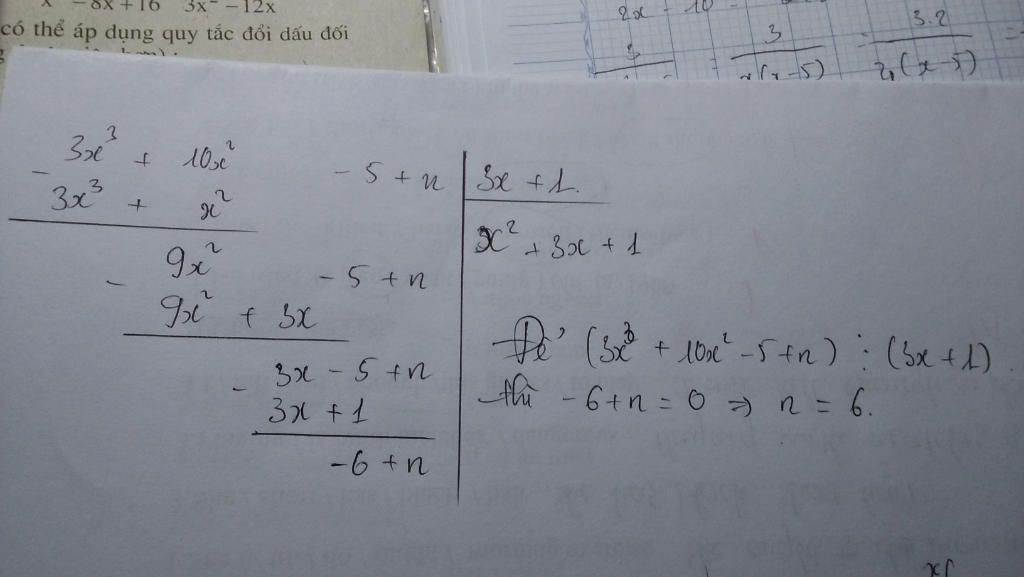 x² - 8x + 16 3x² - 12x
có thể áp dụng quy tắc đổi dấu đối
2x - 10
3 = 3.2
x(x-5) 2x(x-5)
3x³ + 10x² - 5 + n | 3x + 1
- 3x³ + x²
x² + 3x + 1
9x² - 5 + n
- 9x² + 3x
3x - 5 + n
- 3x + 1
-6 + n
Để (3x³ + 10x² - 5 + n) ⋮ (3x + 1)
thì -6 + n = 0 ⇒ n = 6.